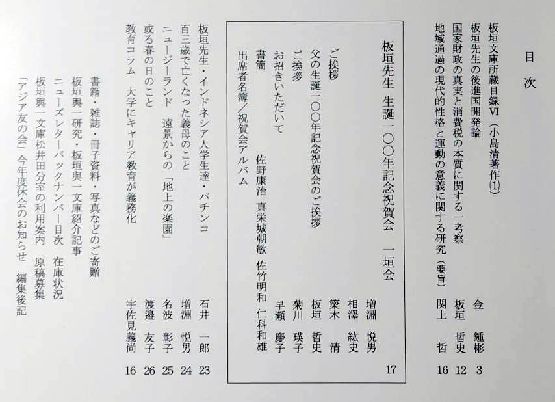 目次
板垣文庫所蔵目録Ⅵ（小島清著作⑴）
板垣先生の後進国開発論 金 鍾彬 3
国家財政の真実と消費税の本質に関する一考察 板垣 哲史 12
地域通過の現代的性格と運動の意義に関する研究（要旨） 関上 哲 16
板垣先生 生誕一〇〇年記念祝賀会 一垣会 17
ご挨拶 増淵 悦男
相澤 紘史
父の生誕一〇〇年記念祝賀会のご挨拶 板垣 哲史
ご挨拶 菊川 瑛子
お招きいただいて 早瀬 慶子
書簡 佐野康治 真栄城朝敏 佐竹明和 仁科和雄
出席者名簿／祝賀会アルバム
板垣先生・インドネシア人学生達・パチンコ 石井 一郎 23
百三歳で亡くなった義母のこと 増淵 悦男 24
ニュージーランド 遠景からの「地上の楽園」 名波 彰子 25
或る春の日のこと 渡邉 友子 26
教育コラム 大学にキャリア教育が義務化 宇佐見義尚 16
書籍・雑誌・冊子資料・写真などのご寄贈
板垣與一研究・板垣與一文庫紹介記事
ニューズレターバックナンバー目次 在庫状況
板垣與一文庫松井田分室の利用案内 原稿募集
「アジア友の会」今年度休会のお知らせ 編集後記